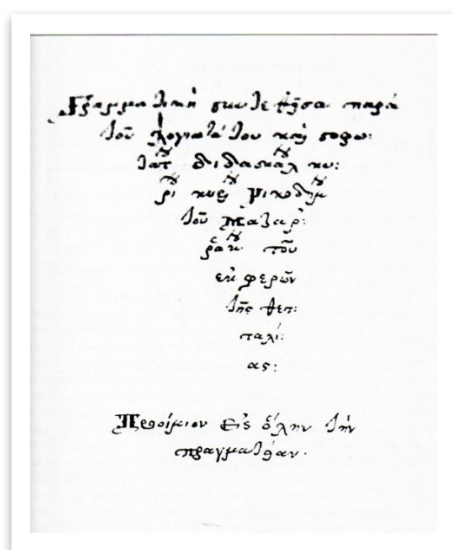 Γραμματικὴ συντεθῆσα παρὰ
τοῦ λογιοτάτου καὶ σοφω:
τάτου διδασκάλου κυ:
ρίου Νικοδήμου
τοῦ Μαζαρ:
ράκου τοῦ
ἐκ φερῶν
τῆς θετ:
ταλί:
ας:
Προοίμιον Εἰς ὅλην τὴν
πραγματείαν.